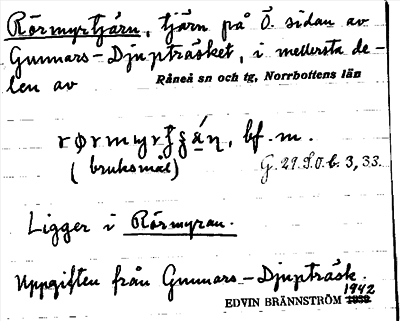 Rörmyrtjärn, tjärn på Ö. sidan av
Gunnars-Djupträsket, i mellersta de-
len av Råneå sn och tg, Norrbottens län
bf. m.
(bruksmål) G. 29. S.O.b. 3, 33.
Ligger i Rörmyran.
Uppgiften från Gunnars-Djupträsk.
EDVIN BRÄNNSTRÖM 1942